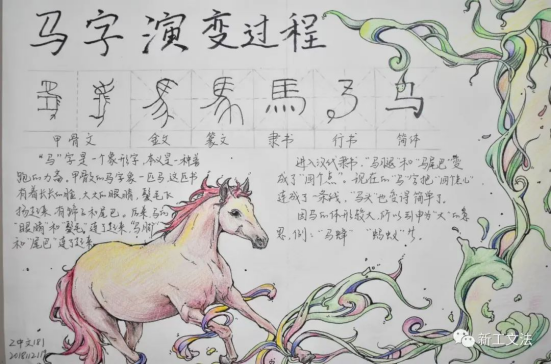 马字演变过程
甲骨文 金文 篆文 隶书 行书 简体
"马"字是一个象形字,本义是一种善
跑的力畜。甲骨文的马字象一匹马,这匹马
有着长长的脸,大大的眼睛,鬃毛飞
扬起来,有蹄子和尾巴。后来马的
"眼睛"和"鬃毛"连了起来,"马脚"
和"尾巴"连了起来。
进入汉代隶书,"马脚"和"马尾巴"变
成了"四个点"。现在的"马"字把"四个点"
连成了一条线,"马头"也变得简单了。
因马的体形较大,所以引申为"大"的意
思,例:"马蜂" "蚂蚁"等。
新工文法